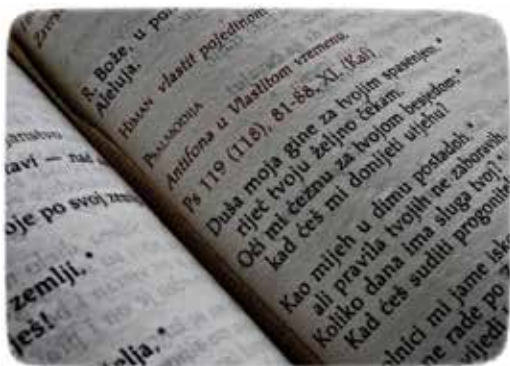 Završ
R. Bože, u pom
Aleluja.
HIMAN vlastit pojedinom
PSALMODIJA
Antifona u Vlastitom vremenu.
Ps 119 (118), 81-88, XI. (Kaf)
Duša moja gine za tvojim spasenjem,*
riječ tvoju željno čekam.
Oči mi čeznu za tvojom besjedom:*
kad ćeš mi donijeti utjehu?
Kao mijeh u dimu postadoh,*
ali pravila tvojih ne zaboravih.
Koliko dana ima sluga tvoj?*
Kad ćeš suditi progonitelj
olnici mi jame isk
ne rade po Z
vijedi
anstvu
tavi — nad
oje po svoj zem
zemlji,*
ješ!
elja,*